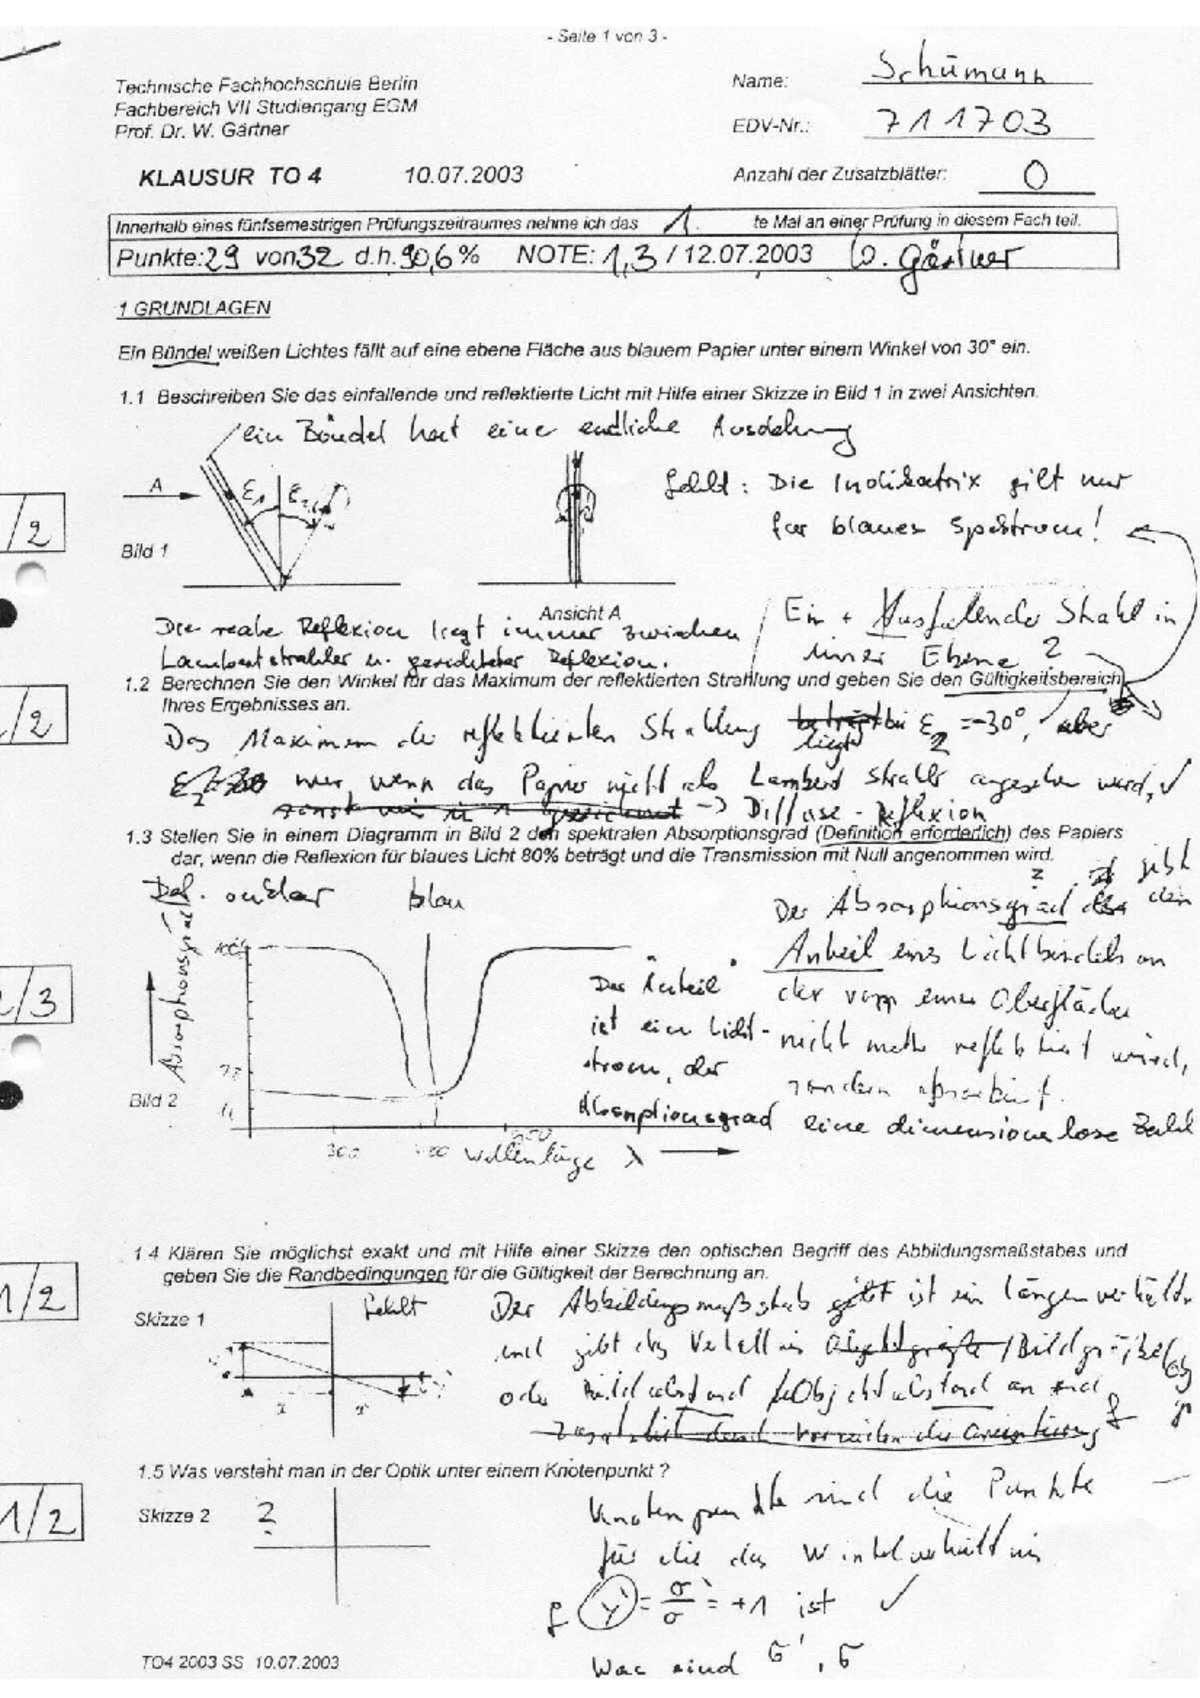 - Seite 1 von 3 -
Technische Fachhochschule Berlin
Fachbereich VII Studiengang EGM
Prof. Dr. W. Gärtner
Name: Schümann
EDV-Nr.: 711703
KLAUSUR TO 4 10.07.2003
Anzahl der Zusatzblätter: 0
Innerhalb eines fünfsemestrigen Prüfungszeitraumes nehme ich das 1. te Mal an einer Prüfung in diesem Fach teil.
Punkte: 29 von 32 d.h. 90,6 % NOTE: 1,3 / 12.07.2003 W. Gärtner
1 GRUNDLAGEN
Ein Bündel weißen Lichtes fällt auf eine ebene Fläche aus blauem Papier unter einem Winkel von 30° ein.
1.1 Beschreiben Sie das einfallende und reflektierte Licht mit Hilfe einer Skizze in Bild 1 in zwei Ansichten.
ein Bündel hat eine endliche Ausdehnung
A
ε1 ε2
fehlt: Die Indikatrix gilt nur
für blaues Spektrum!
/2
Bild 1
Ansicht A
Die reale Reflexion liegt immer zwischen
Lambertstrahler u. gerichteter Reflexion.
Ein + Ausfallender Strahl in
einer Ebene ?
1.2 Berechnen Sie den Winkel für das Maximum der reflektierten Strahlung und geben Sie den Gültigkeitsbereich
Ihres Ergebnisses an.
/2
Das Maximum der reflektierten Strahlung beträgt liegt bei ε2 = -30°, aber
nur wenn das Papier nicht als Lambert Strahler angesehen wird, ✓
sonst wie in 1 gezeichnet -> Diffuse-Reflexion
1.3 Stellen Sie in einem Diagramm in Bild 2 den spektralen Absorptionsgrad (Definition erforderlich) des Papiers
dar, wenn die Reflexion für blaues Licht 80% beträgt und die Transmission mit Null angenommen wird.
Def. unklar
blau
Absorptionsgrad
100%
/3
Bild 2
300
Wellenlänge λ
Der Absorptionsgrad gibt den
Anteil eines Lichtbündels an
der von einer Oberfläche
nicht mehr reflektiert wird,
sondern absorbiert.
Der Anteil
ist ein Licht-
strom, der
Absorptionsgrad eine dimensionslose Zahl
1.4 Klären Sie möglichst exakt und mit Hilfe einer Skizze den optischen Begriff des Abbildungsmaßstabes und
geben Sie die Randbedingungen für die Gültigkeit der Berechnung an.
1/2
Skizze 1
fehlt
Der Abbildungsmaßstab gibt ist ein Längenverhältn.
und gibt das Verhältnis Objektgröße / Bildgröße
oder Bildabstand / Objektabstand an und
f
1.5 Was versteht man in der Optik unter einem Knotenpunkt ?
1/2
Skizze 2
?
Knotenpunkte sind die Punkte
für die das Winkelverhältnis
f γ' = σ'/σ = +1 ist ✓
Was sind σ', σ
TO4 2003 SS 10.07.2003